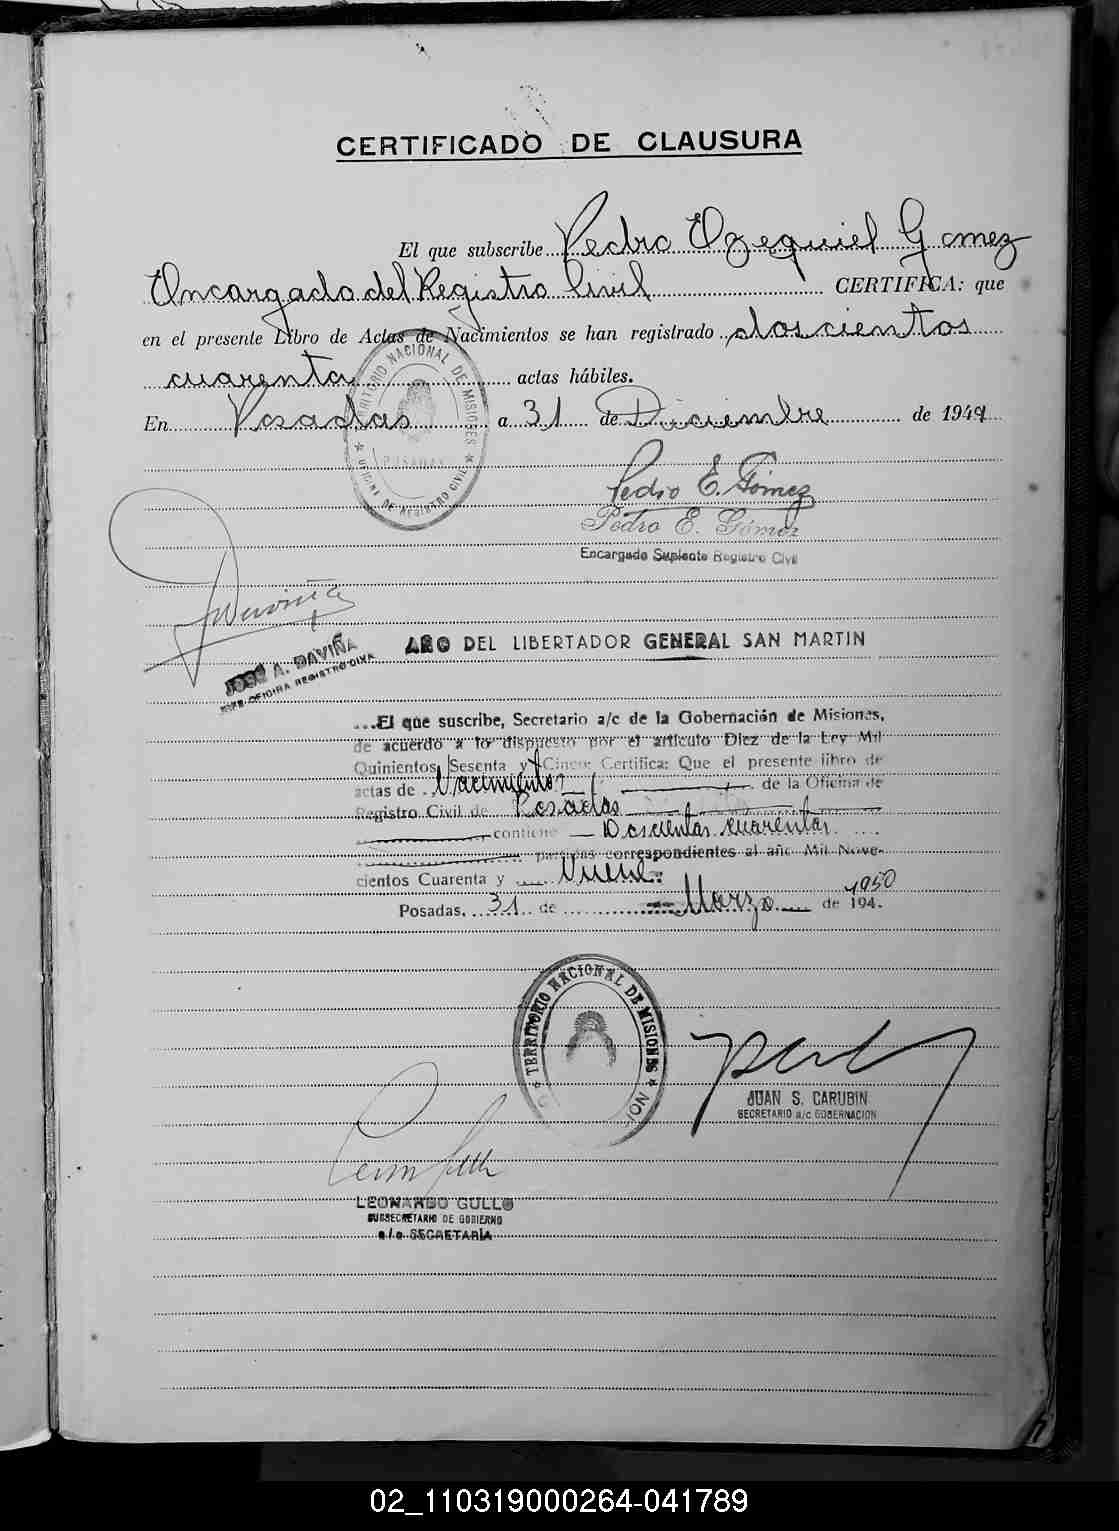 CERTIFICADO DE CLAUSURA
El que subscribe Pedro Ezequiel Gomez
Encargado del Registro Civil CERTIFICA: que
en el presente Libro de Actas de Nacimientos se han registrado doscientos
cuarenta actas hábiles.
En Posadas a 31 de Diciembre de 1949
TERRITORIO NACIONAL DE MISIONES
POSADAS
OFICINA DE REGISTRO CIVIL
Pedro E. Gómez
Pedro E. Gómez
Encargado Suplente Registro Civil
JOSÉ A. DAVIÑA
JEFE OFICINA REGISTRO CIVIL
AÑO DEL LIBERTADOR GENERAL SAN MARTIN
...El que suscribe, Secretario a/c de la Gobernación de Misiones,
de acuerdo a lo dispuesto por el artículo Diez de la Ley Mil
Quinientos Sesenta y Cinco: Certifica: Que el presente libro de
actas de Nacimientos de la Oficina de
Registro Civil de Posadas
contiene Doscientas cuarentas
partidas correspondientes al año Mil Nove-
cientos Cuarenta y Nueve.
Posadas, 31 de Marzo de 194. 1950
TERRITORIO NACIONAL DE MISIONES
JUAN S. CARUBIN
SECRETARIO a/c GOBERNACION
LEONARDO GULLO
SUBSECRETARIO DE GOBIERNO
a/c SECRETARÍA
02_110319000264-041789